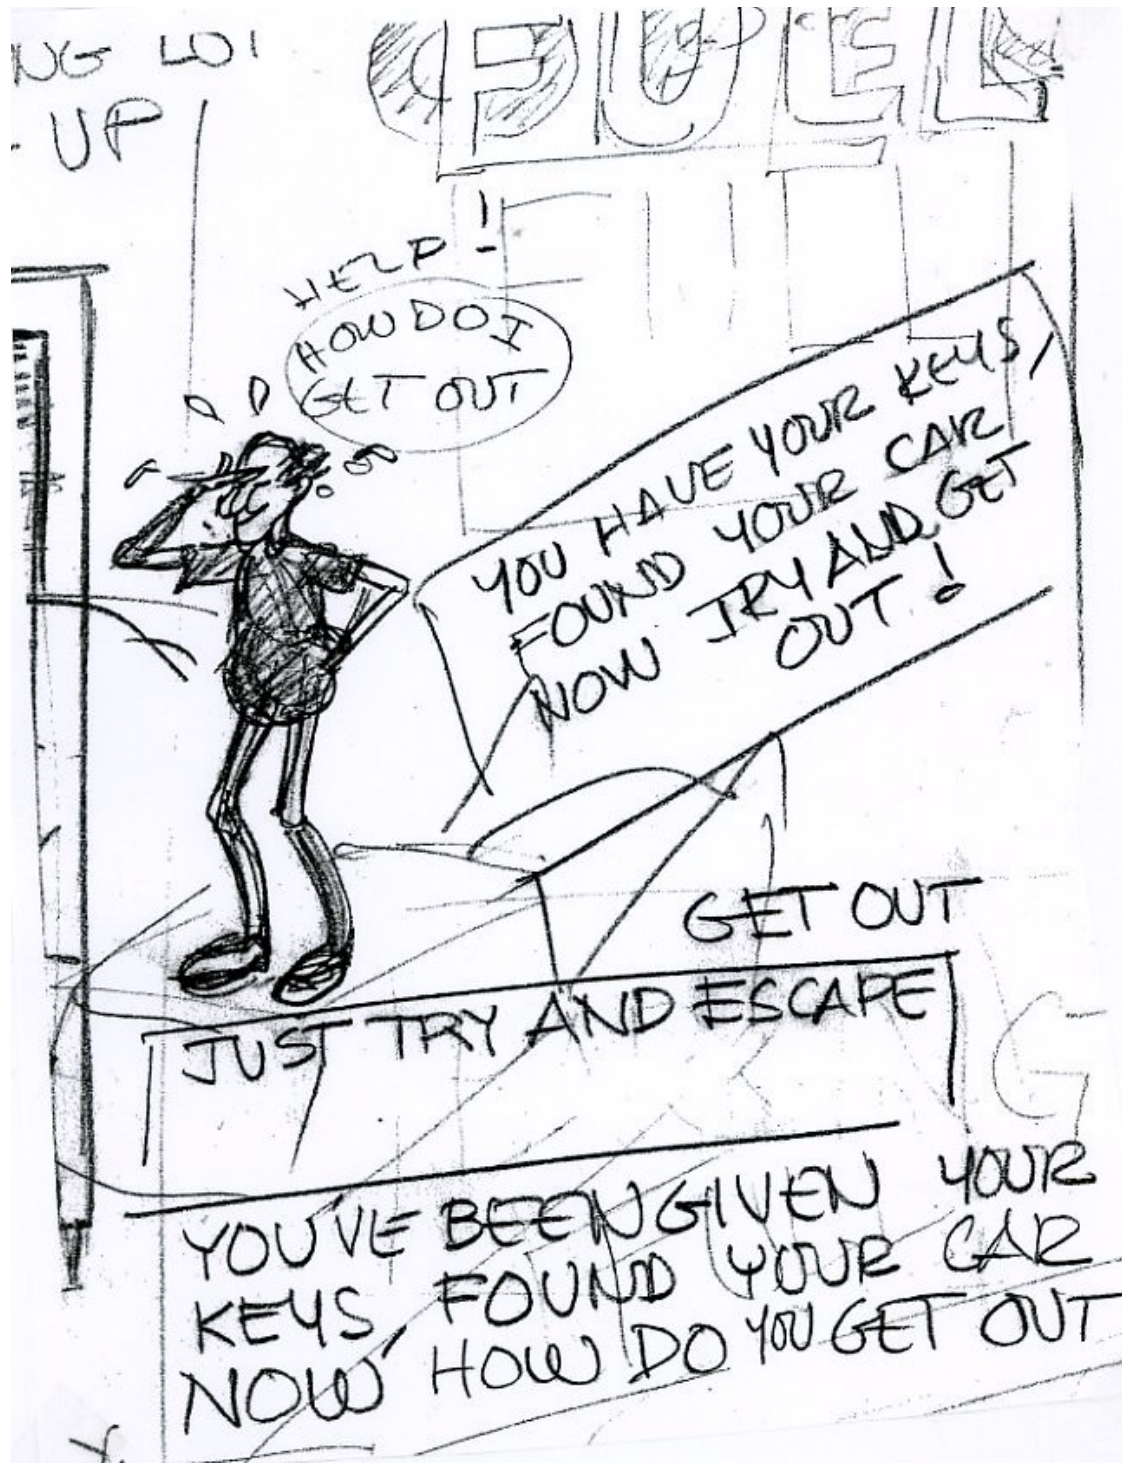 NG LOT
UP
FULL
FULL
HELP!
HOW DO I
GET OUT
YOU HAVE YOUR KEYS,
FOUND YOUR CAR
NOW TRY AND GET
OUT!
GET OUT
JUST TRY AND ESCAPE
G
YOU'VE BEEN GIVEN YOUR
KEYS, FOUND YOUR CAR
NOW HOW DO YOU GET OUT